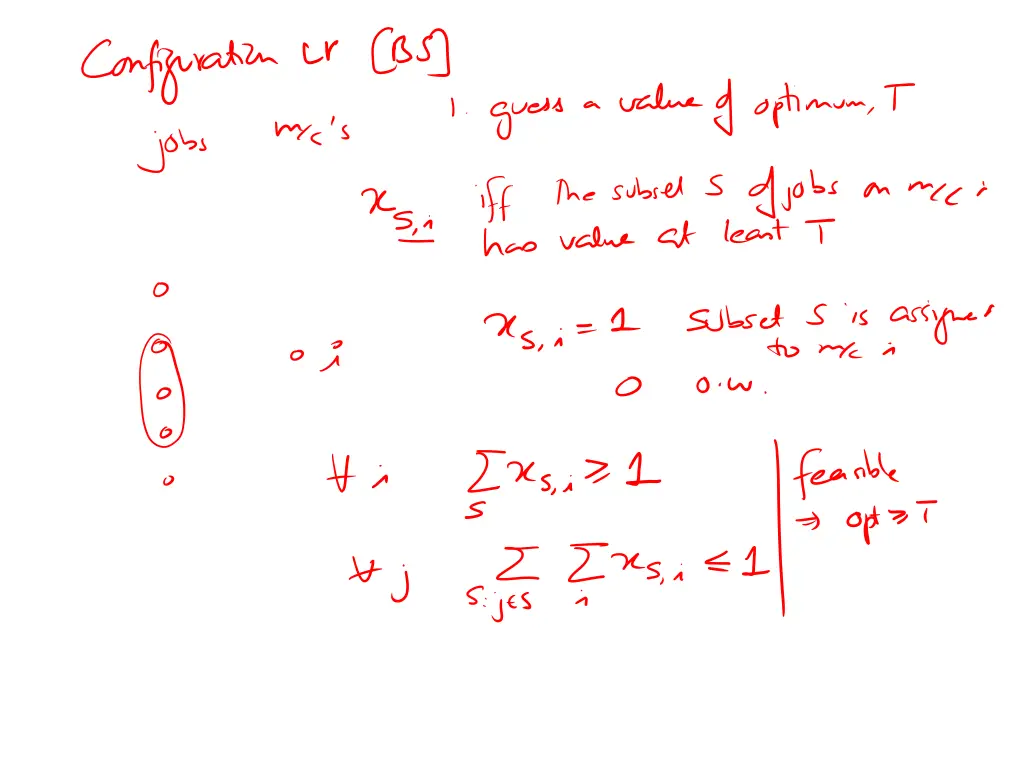 Configuration LP [BS]
1. guess a value of optimum, T
jobs m/c's
x_{S,i} iff the subset S of jobs on m/c i
has value at least T
x_{S,i} = 1 subset S is assigned
to m/c i
0 o.w.
i
∀ i ∑_S x_{S,i} ≥ 1
∀ j ∑_{S:j∈S} ∑_i x_{S,i} ≤ 1
feasible
⇒ opt ≥ T